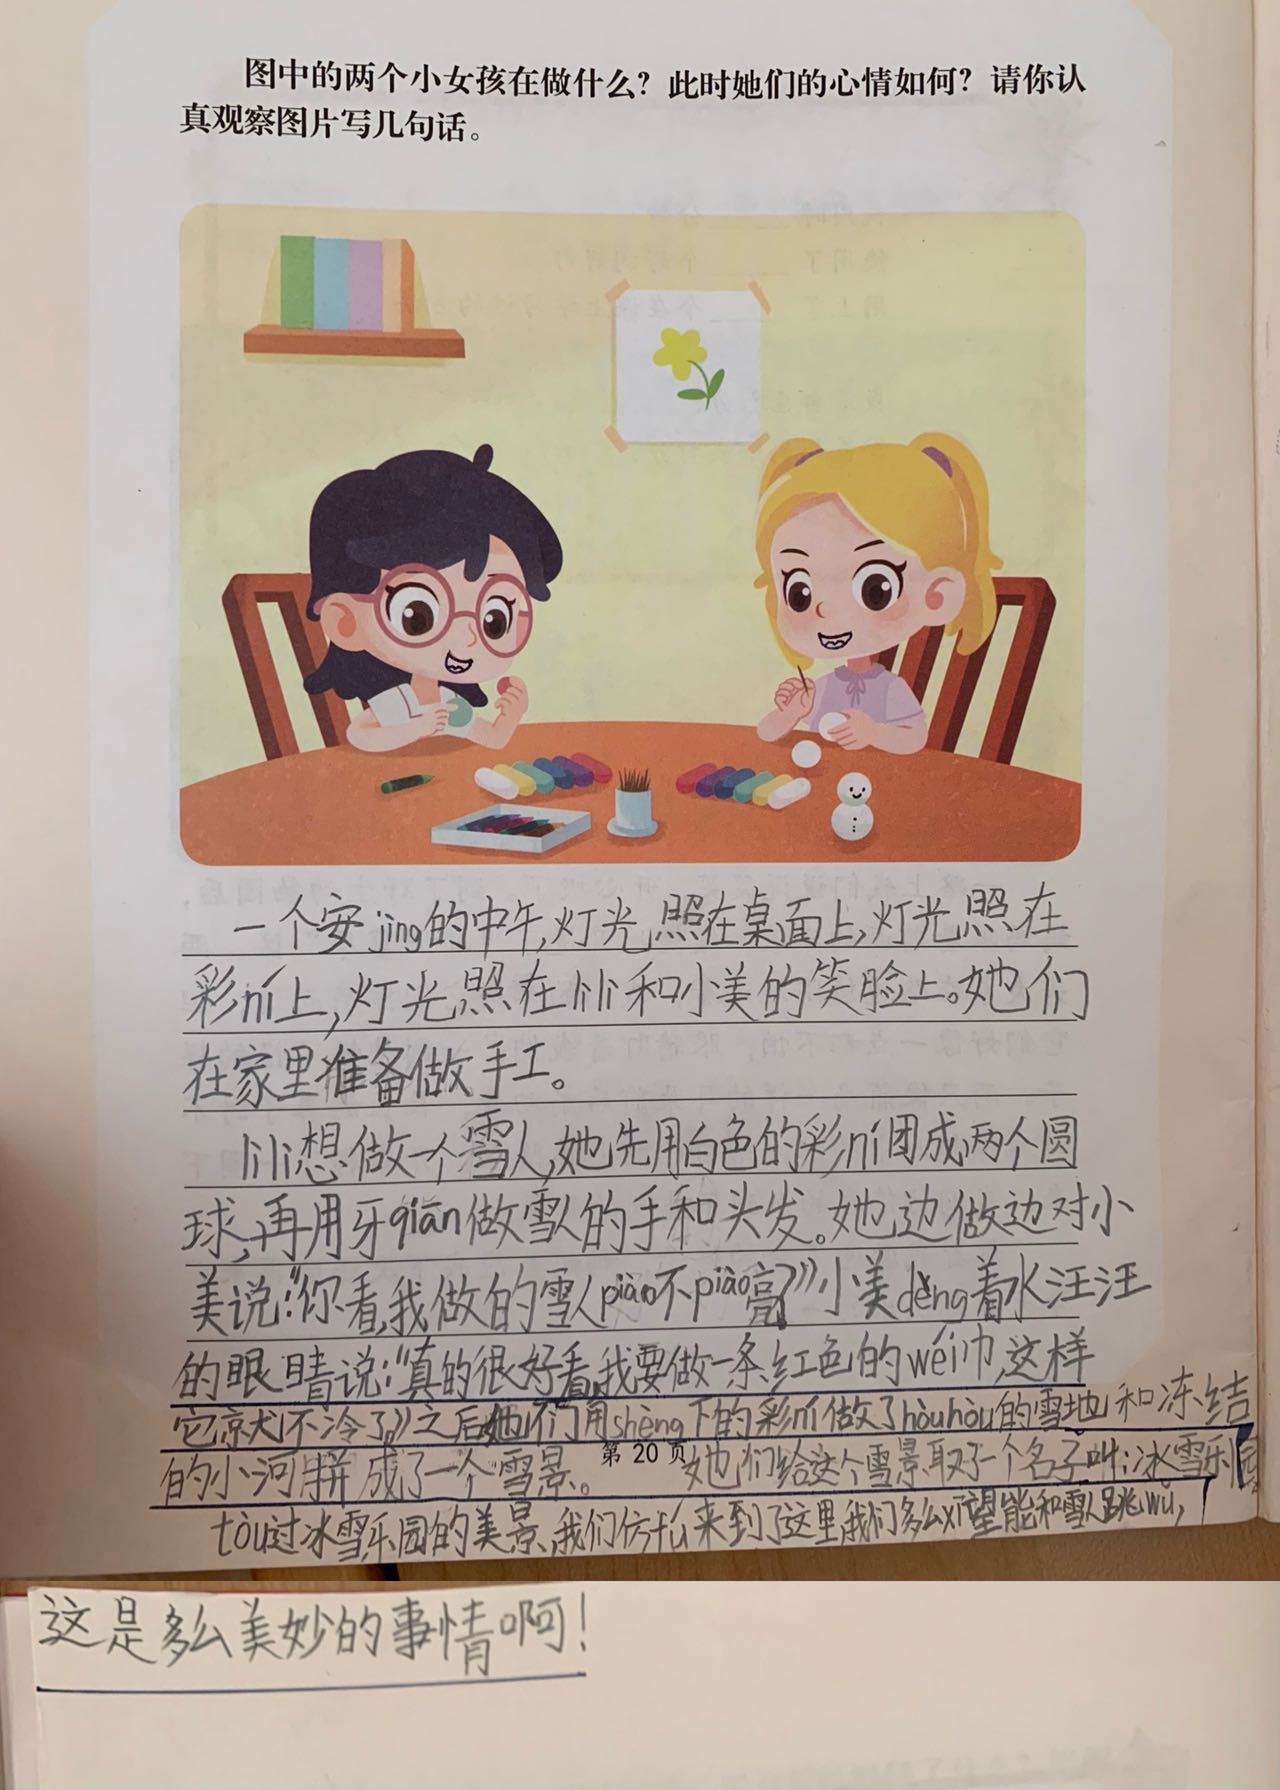 图中的两个小女孩在做什么？此时她们的心情如何？请你认
真观察图片写几句话。
一个安jìng的中午,灯光照在桌面上,灯光照在
彩ní上,灯光照在lìlì和小美的笑脸上。她们
在家里准备做手工。
lìlì想做一个雪人,她先用白色的彩ní团成两个圆
球,再用牙qiān做雪人的手和头发。她边做边对小
美说:“你看,我做的雪人piào不piào亮？”小美dèng着水汪汪
的眼睛说:“真的很好看,我要做一条红色的wéi巾,这样
它就不冷了。”之后她们用shèng下的彩ní做了hòuhòu的雪地和冻结
的小河拼成了一个雪景。她们给这个雪景取了一个名字叫:冰雪乐园。
第 20 页
tòu过冰雪乐园的美景,我们仿什么来到了这里,我们多么xī望能和雪人跳wǔ,
这是多么美妙的事情啊!